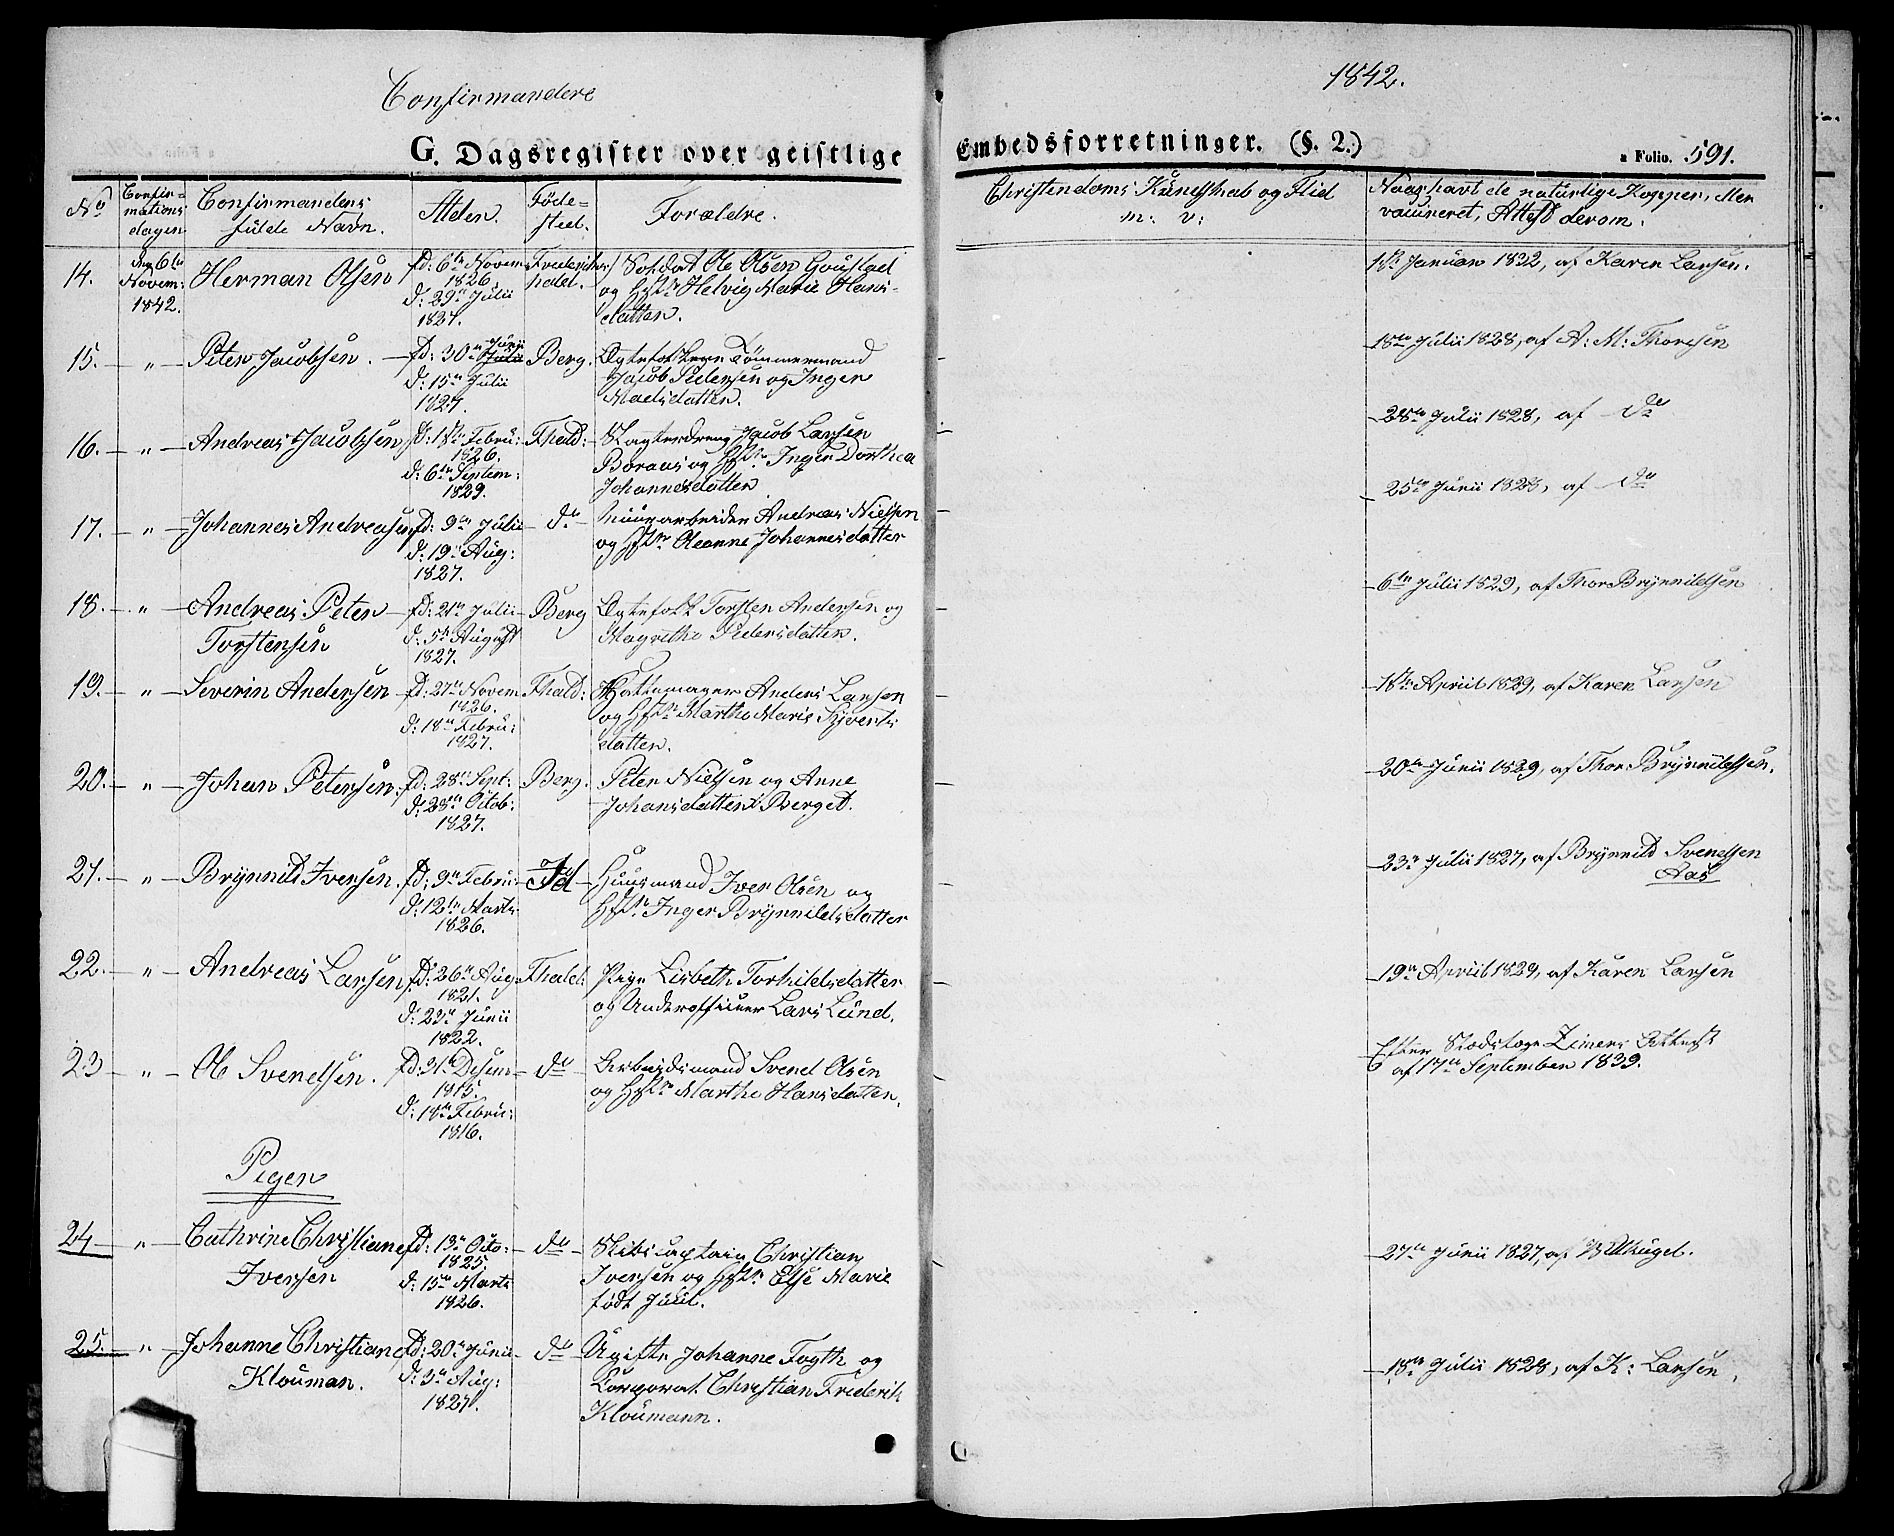 Confirmandere
1842.
G. Dagsregister over geistlige Embedsforretninger. (§. 2.)
a Folio. 591.
No
Confir-
mations
dagen
Confirmandens
fulde Navn.
Alder.
Føde-
sted.
Forældre.
Christendoms Kundskab og Flid
m: v:
Naar havt de naturlige Kopper, eller
vaccineret, Attest derom.
14.
den 6te
Novem:
1842.
Herman Olsen
fd: 6te Novem
1826.
d: 29de Julii
1827.
Frederiks-
hald.
Soldat Ole Olsen Goustad
og Hstr Helvig Marie Hans-
datter.
1ste Januar 1832, af Karen Larsen.
15. — „ — Peter Jacobsen.
fd: 30te Junii
Julii
d: 15de Julii
1827.
Berg.
Ægtefolkene Tømmermand
Jacob Pedersen og Inger
Madsdatter.
18de Julii 1828, af A: M: Thoresen
16. — „ — Andreas Jacobsen
fd: 1ste Febru:
1826.
d: 6te Septem:
1829.
Fhald:
Slagterdreng Jacob Larsen
Boraas og Hstr Inger Dorthea
Johannesdatter
28de Julii 1828, af do
17. — „ — Johannes Andreasen
fd: 9de Julii
d: 19de Aug:
1827.
do
Muurarbeider Andreas Nielsen
og Hstr Oleanne Johannesdatter
25de Junii 1828, af do
18. — „ — Andreas Peter
Torstensen
fd: 21de Julii
d: 5te August
1827.
Berg
Ægtefolk Torsten Andersen og
Magrethe Pedersdatter.
6te Julii 1829, af Thor Brynnildsen
19. — „ — Severin Andersen
fd: 27de Novem
1826.
d: 18de Febru:
1827.
Fhald:
Hattemager Anders Larsen
og Hstr Marthe Marie Syverts
datter.
18de April 1829, af Karen Larsen
20. — „ — Johan Petersen.
fd: 28de Sept:
d: 28de Octob:
1827.
Berg.
Peter Nielsen og Anne
Johansdatter Berget.
20de Junii 1829, af Thor Brynnildsen.
21. — „ — Brynnild Iversen.
fd: 9de Febru:
d: 12te Marts
1826.
Id
Huusmand Iver Olsen og
Hstr Inger Brynnildsdatter
23de Julii 1827, af Brynnild Svendsen
Aas
22. — „ — Andreas Larsen
fd: 26de Aug
1821.
d: 23de Junii
1822.
Fhald:
Pige Lisbeth Torkildsdatter
og Underofficeer Lars Lund.
19de April 1829, af Karen Larsen
23 — „ — Ole Svendsen.
fd: 31te Desem
1815.
d: 18de Febru:
1816.
do
Arbeidsmand Svend Olsen
og Hstr Marthe Hansdatter.
Efter Stadslæge Zimers Attest
af 17de September 1839.
Piger
24 — „ — Cathrine Christiane
Iversen
fd: 13de Octo:
1825.
d: 15de Marts
1826.
do
Skibscaptain Christian
Iversen og Hstr Else Marie
født Juul.
27de Junii 1827, af
25. — „ — Johanne Christiane
Klouman.
fd: 20de Junii
d: 3de Aug:
1827.
do
Ugifte Johanne Fogth og
Corporal Christian Frederik
Kloumann.
18de Julii 1828, af K: Larsen.